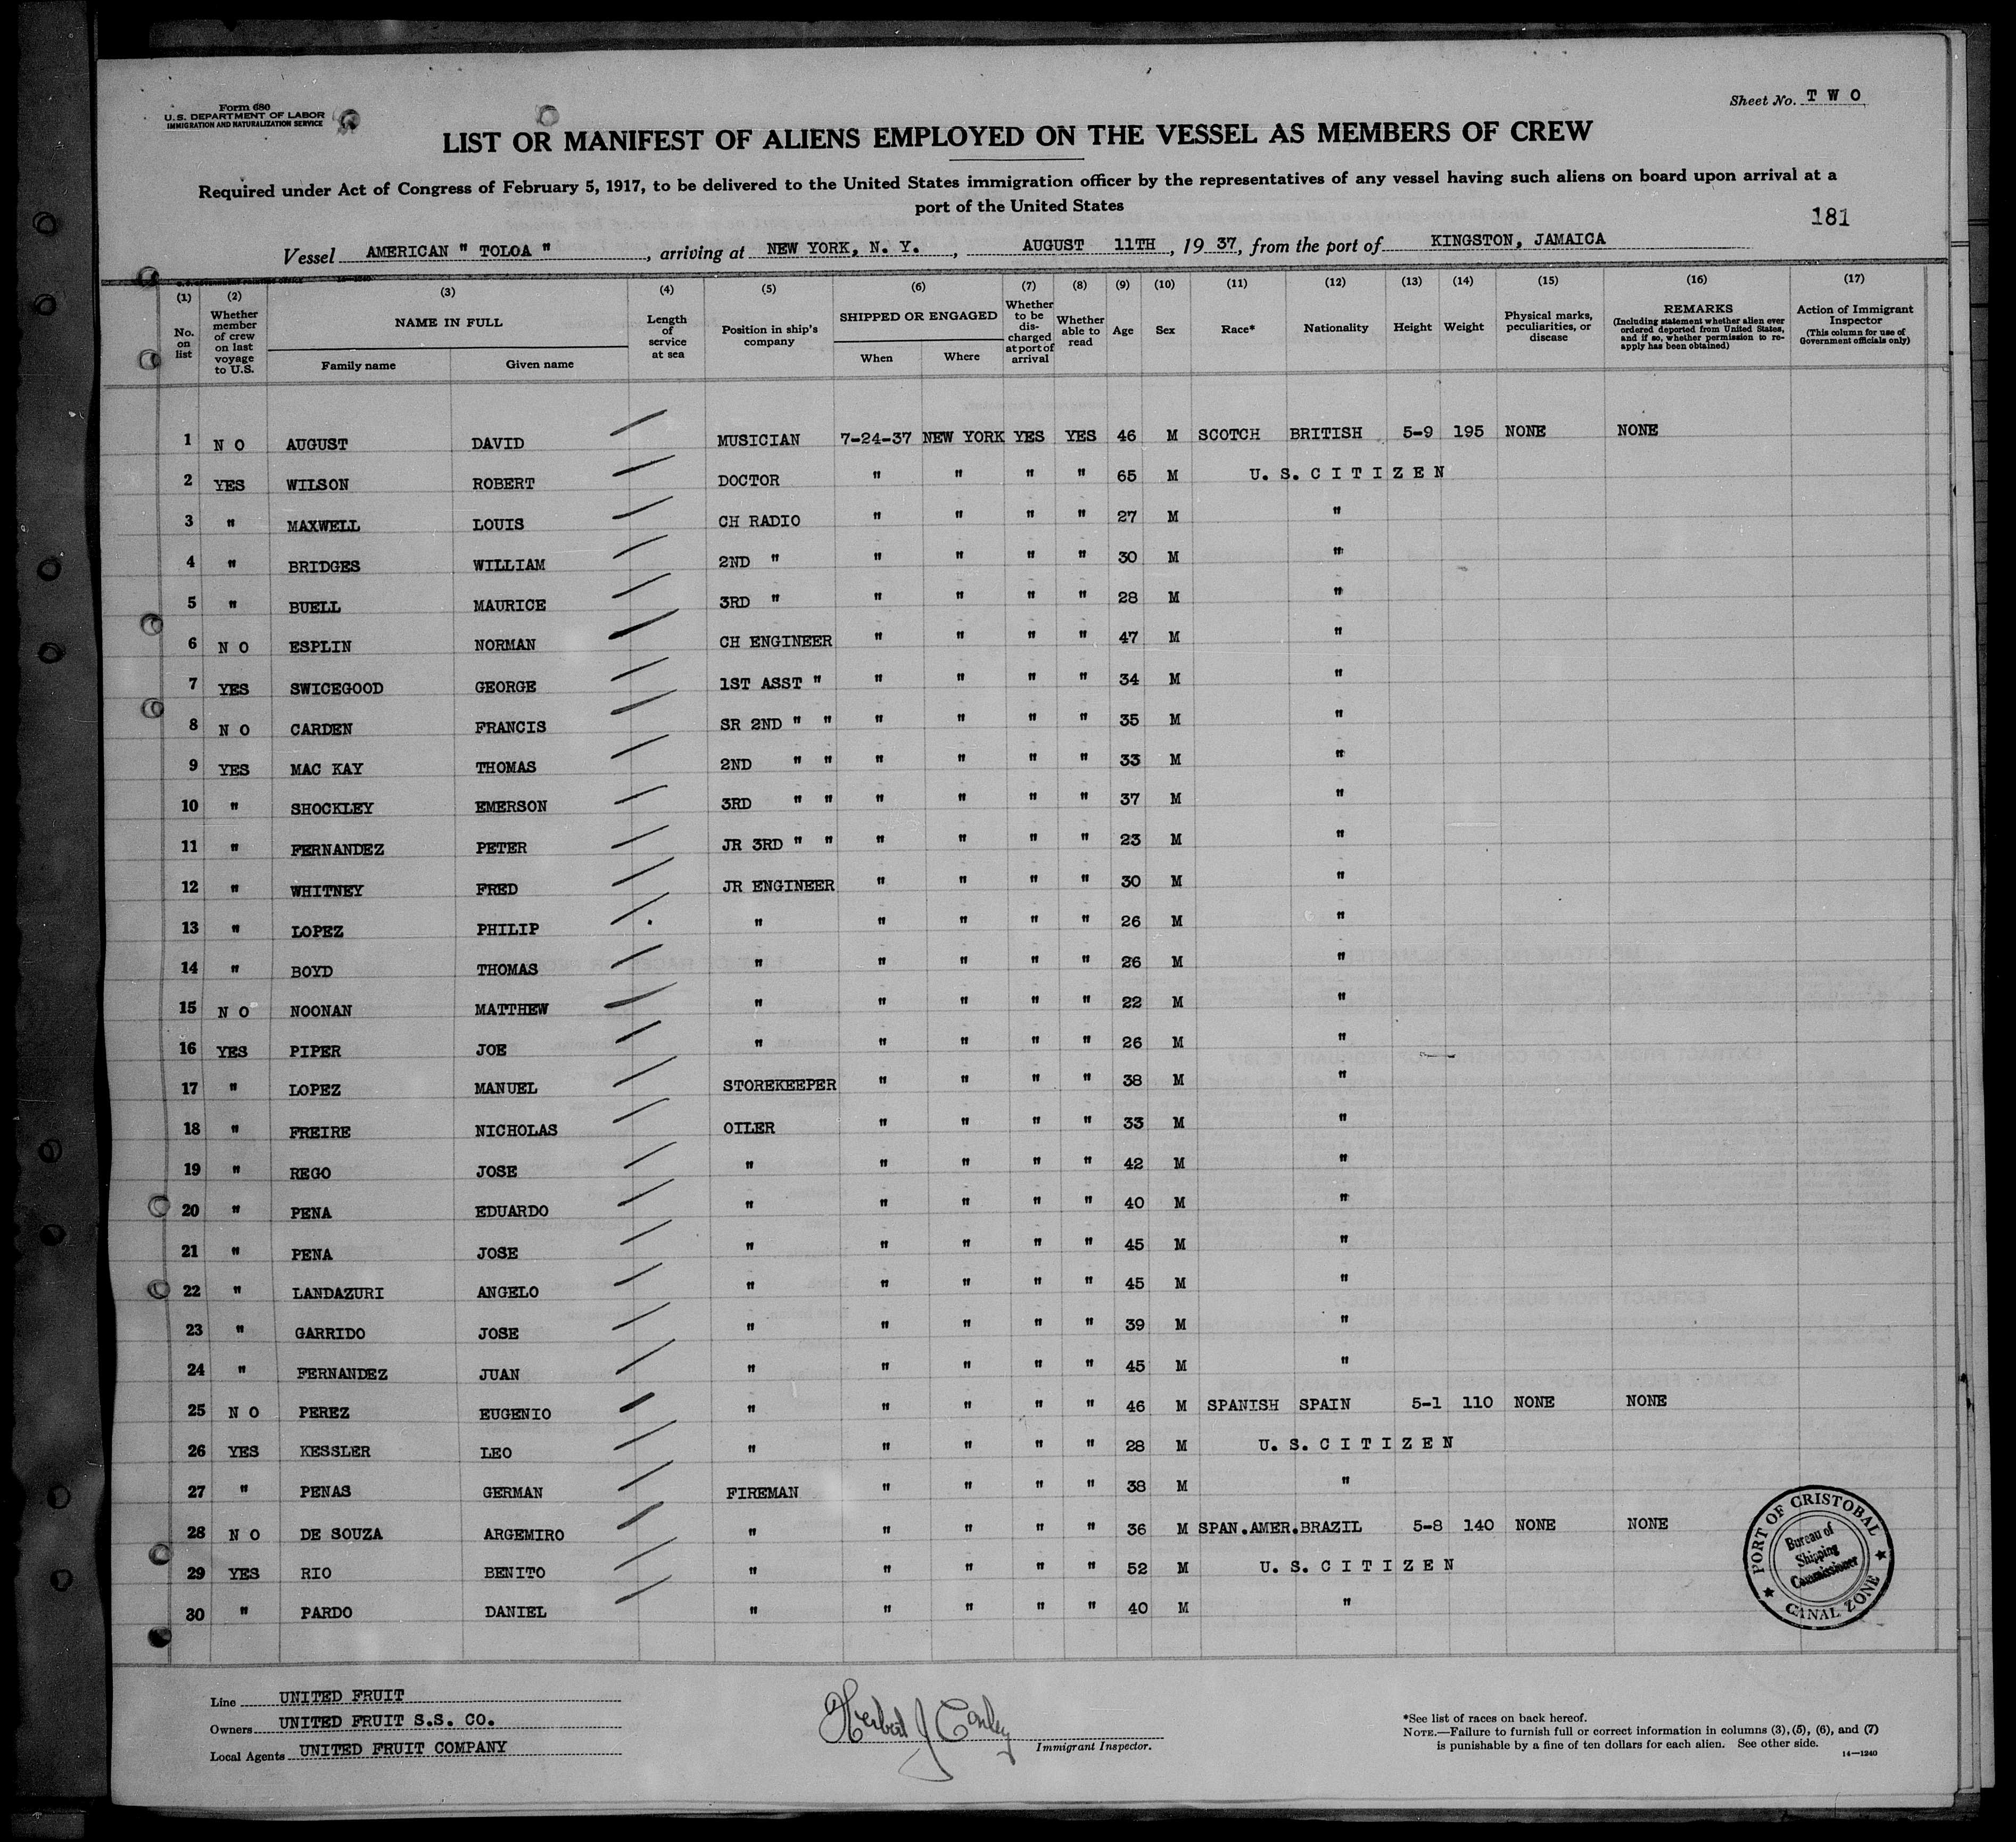 Form 680
U.S. DEPARTMENT OF LABOR
IMMIGRATION AND NATURALIZATION SERVICE
Sheet No. T W O
LIST OR MANIFEST OF ALIENS EMPLOYED ON THE VESSEL AS MEMBERS OF CREW
Required under Act of Congress of February 5, 1917, to be delivered to the United States immigration officer by the representatives of any vessel having such aliens on board upon arrival at a
port of the United States
181
Vessel AMERICAN " TOLOA " , arriving at NEW YORK, N. Y. , AUGUST 11TH , 19 37, from the port of KINGSTON, JAMAICA
(1) (2) (3) (4) (5) (6) (7) (8) (9) (10) (11) (12) (13) (14) (15) (16) (17)
No. on list
Whether member of crew on last voyage to U.S.
NAME IN FULL
Family name Given name
Length of service at sea
Position in ship's company
SHIPPED OR ENGAGED
When Where
Whether to be discharged at port of arrival
Whether able to read
Age
Sex
Race*
Nationality
Height
Weight
Physical marks, peculiarities, or disease
REMARKS
(Including statement whether alien ever ordered deported from United States, and if so, whether permission to re-apply has been obtained)
Action of Immigrant Inspector
(This column for use of Government officials only)
1 N O AUGUST DAVID MUSICIAN 7-24-37 NEW YORK YES YES 46 M SCOTCH BRITISH 5-9 195 NONE NONE
2 YES WILSON ROBERT DOCTOR " " " " 65 M U. S. C I T I Z E N
3 " MAXWELL LOUIS CH RADIO " " " " 27 M "
4 " BRIDGES WILLIAM 2ND " " " " " 30 M "
5 " BUELL MAURICE 3RD " " " " " 28 M "
6 N O ESPLIN NORMAN CH ENGINEER " " " " 47 M "
7 YES SWICEGOOD GEORGE 1ST ASST " " " " " 34 M "
8 N O CARDEN FRANCIS SR 2ND " " " " " " 35 M "
9 YES MAC KAY THOMAS 2ND " " " " " " 33 M "
10 " SHOCKLEY EMERSON 3RD " " " " " " 37 M "
11 " FERNANDEZ PETER JR 3RD " " " " " " 23 M "
12 " WHITNEY FRED JR ENGINEER " " " " 30 M "
13 " LOPEZ PHILIP " " " " " 26 M "
14 " BOYD THOMAS " " " " " 26 M "
15 N O NOONAN MATTHEW " " " " " 22 M "
16 YES PIPER JOE " " " " " 26 M "
17 " LOPEZ MANUEL STOREKEEPER " " " " 38 M "
18 " FREIRE NICHOLAS OILER " " " " 33 M "
19 " REGO JOSE " " " " " 42 M "
20 " PENA EDUARDO " " " " " 40 M "
21 " PENA JOSE " " " " " 45 M "
22 " LANDAZURI ANGELO " " " " " 45 M "
23 " GARRIDO JOSE " " " " " 39 M "
24 " FERNANDEZ JUAN " " " " " 45 M "
25 N O PEREZ EUGENIO " " " " " 46 M SPANISH SPAIN 5-1 110 NONE NONE
26 YES KESSLER LEO " " " " " 28 M U. S. C I T I Z E N
27 " PENAS GERMAN FIREMAN " " " " 38 M "
28 N O DE SOUZA ARGEMIRO " " " " " 36 M SPAN.AMER.BRAZIL 5-8 140 NONE NONE
29 YES RIO BENITO " " " " " 52 M U. S. C I T I Z E N
30 " PARDO DANIEL " " " " " 40 M "
PORT OF CRISTOBAL
Bureau of
Shipping
Commissioner
CANAL ZONE
Line UNITED FRUIT
Owners UNITED FRUIT S.S. CO.
Local Agents UNITED FRUIT COMPANY
Herbert J Conley
Immigrant Inspector.
*See list of races on back hereof.
NOTE.—Failure to furnish full or correct information in columns (3), (5), (6), and (7)
is punishable by a fine of ten dollars for each alien. See other side.
14—1240